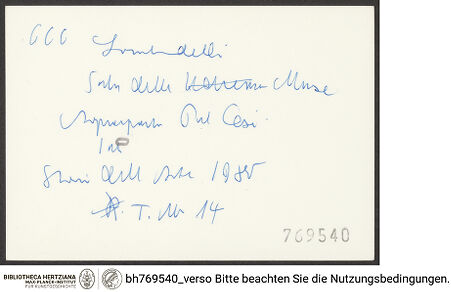 CCC Lombardelli
Sala delle Muse
Pal Cesi
Storia dell Arte 1985
T. Nr 14
769540
BIBLIOTHECA HERTZIANA
MAX-PLANCK-INSTITUT
FÜR KUNSTGESCHICHTE
bh769540_verso Bitte beachten Sie die Nutzungsbedingungen.